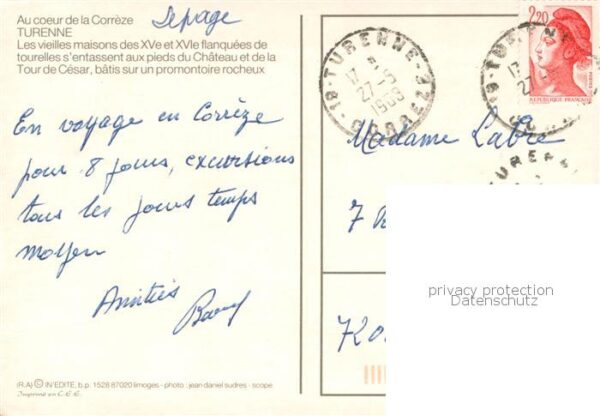 Au coeur de la Corrèze
Lepage
TURENNE
Les vieilles maisons des XVe et XVIe flanquées de
tourelles s'entassent aux pieds du Château et de la
Tour de César, bâtis sur un promontoire rocheux
En voyage en Corrèze
pour 8 jours, excursions
tous les jours temps
moyen
Amitiés
(R.A) © IN'EDITE, b.p. 1528 87020 limoges - photo : jean daniel sudres - scope
Imprimé en C.E.E.
19 TURENNE
17 H
27-5
CORREZE
2,20
REPUBLIQUE FRANÇAISE
TURENNE
17
27
TURENNE
Madame Labre
7
privacy protection
Datenschutz